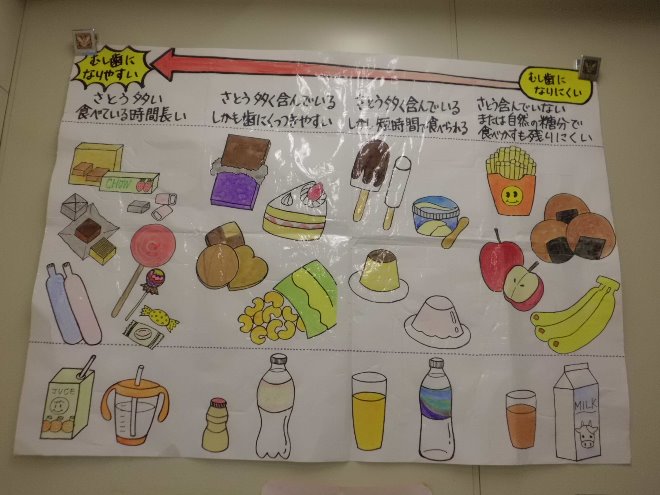 むし歯に
なりやすい
むし歯に
なりにくい
さとう多い
食べている時間長い
さとう多く含んでいる
しかも歯にくっつきやすい
さとう多く含んでいる
しかし短時間で食べられる
さとう含んでいない
または自然の糖分で
食べかすも残りにくい
CHOW
MILK